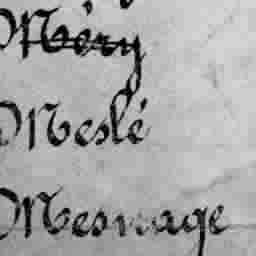 Méry
Meslé
Mesnage